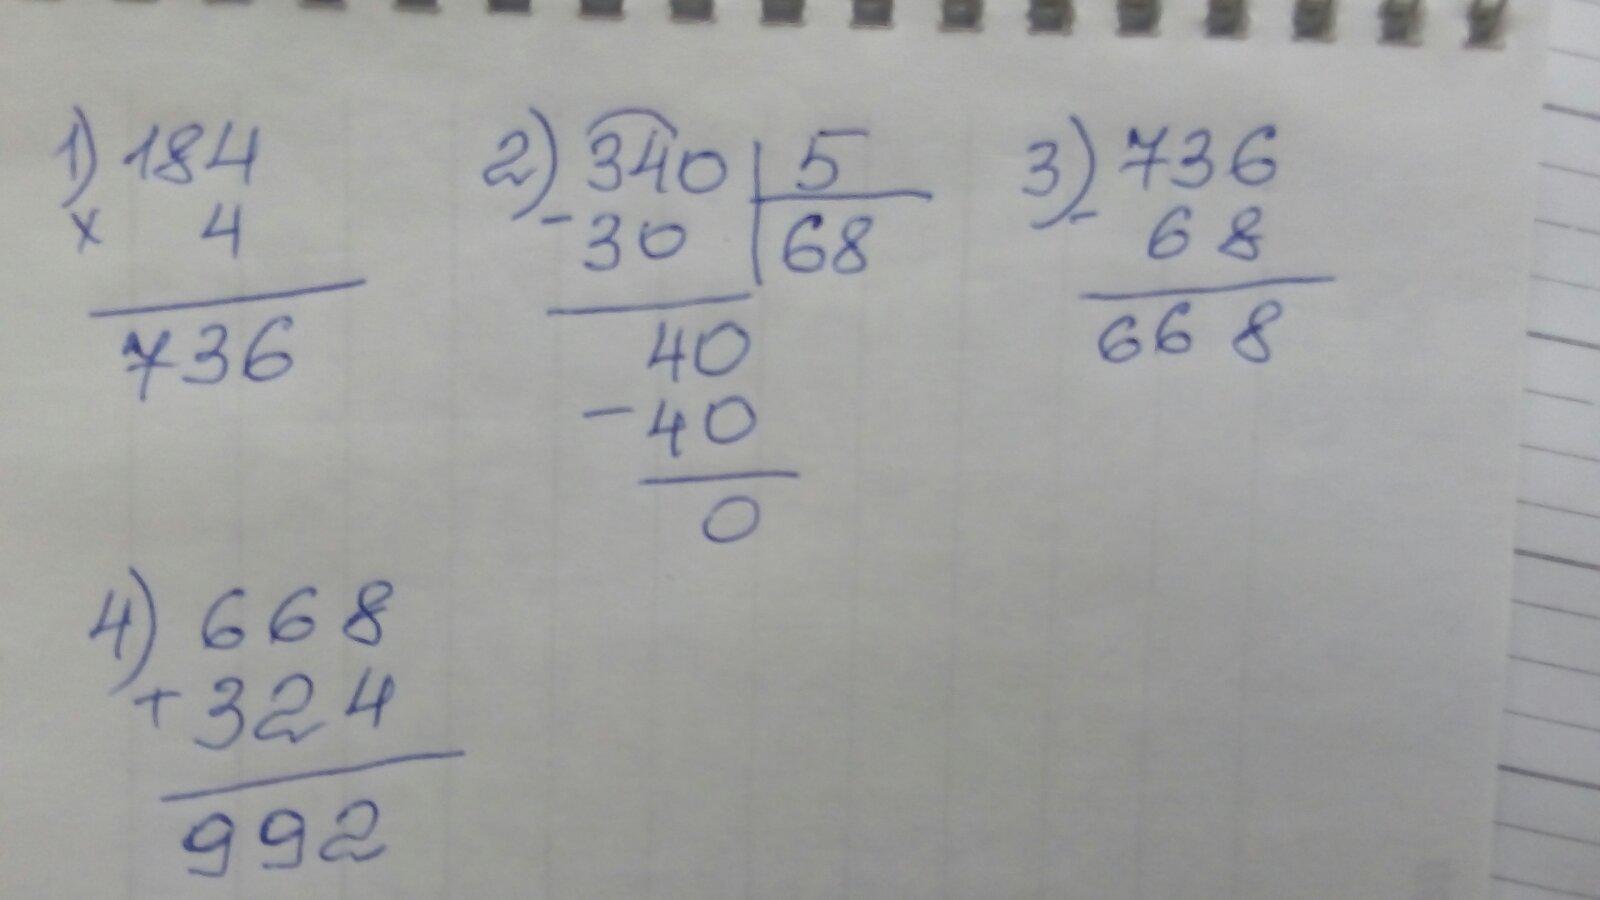 1) 184
× 4
736
2) 340 | 5
- 30 | 68
40
- 40
0
3) 736
- 68
668
4) 668
+ 324
992